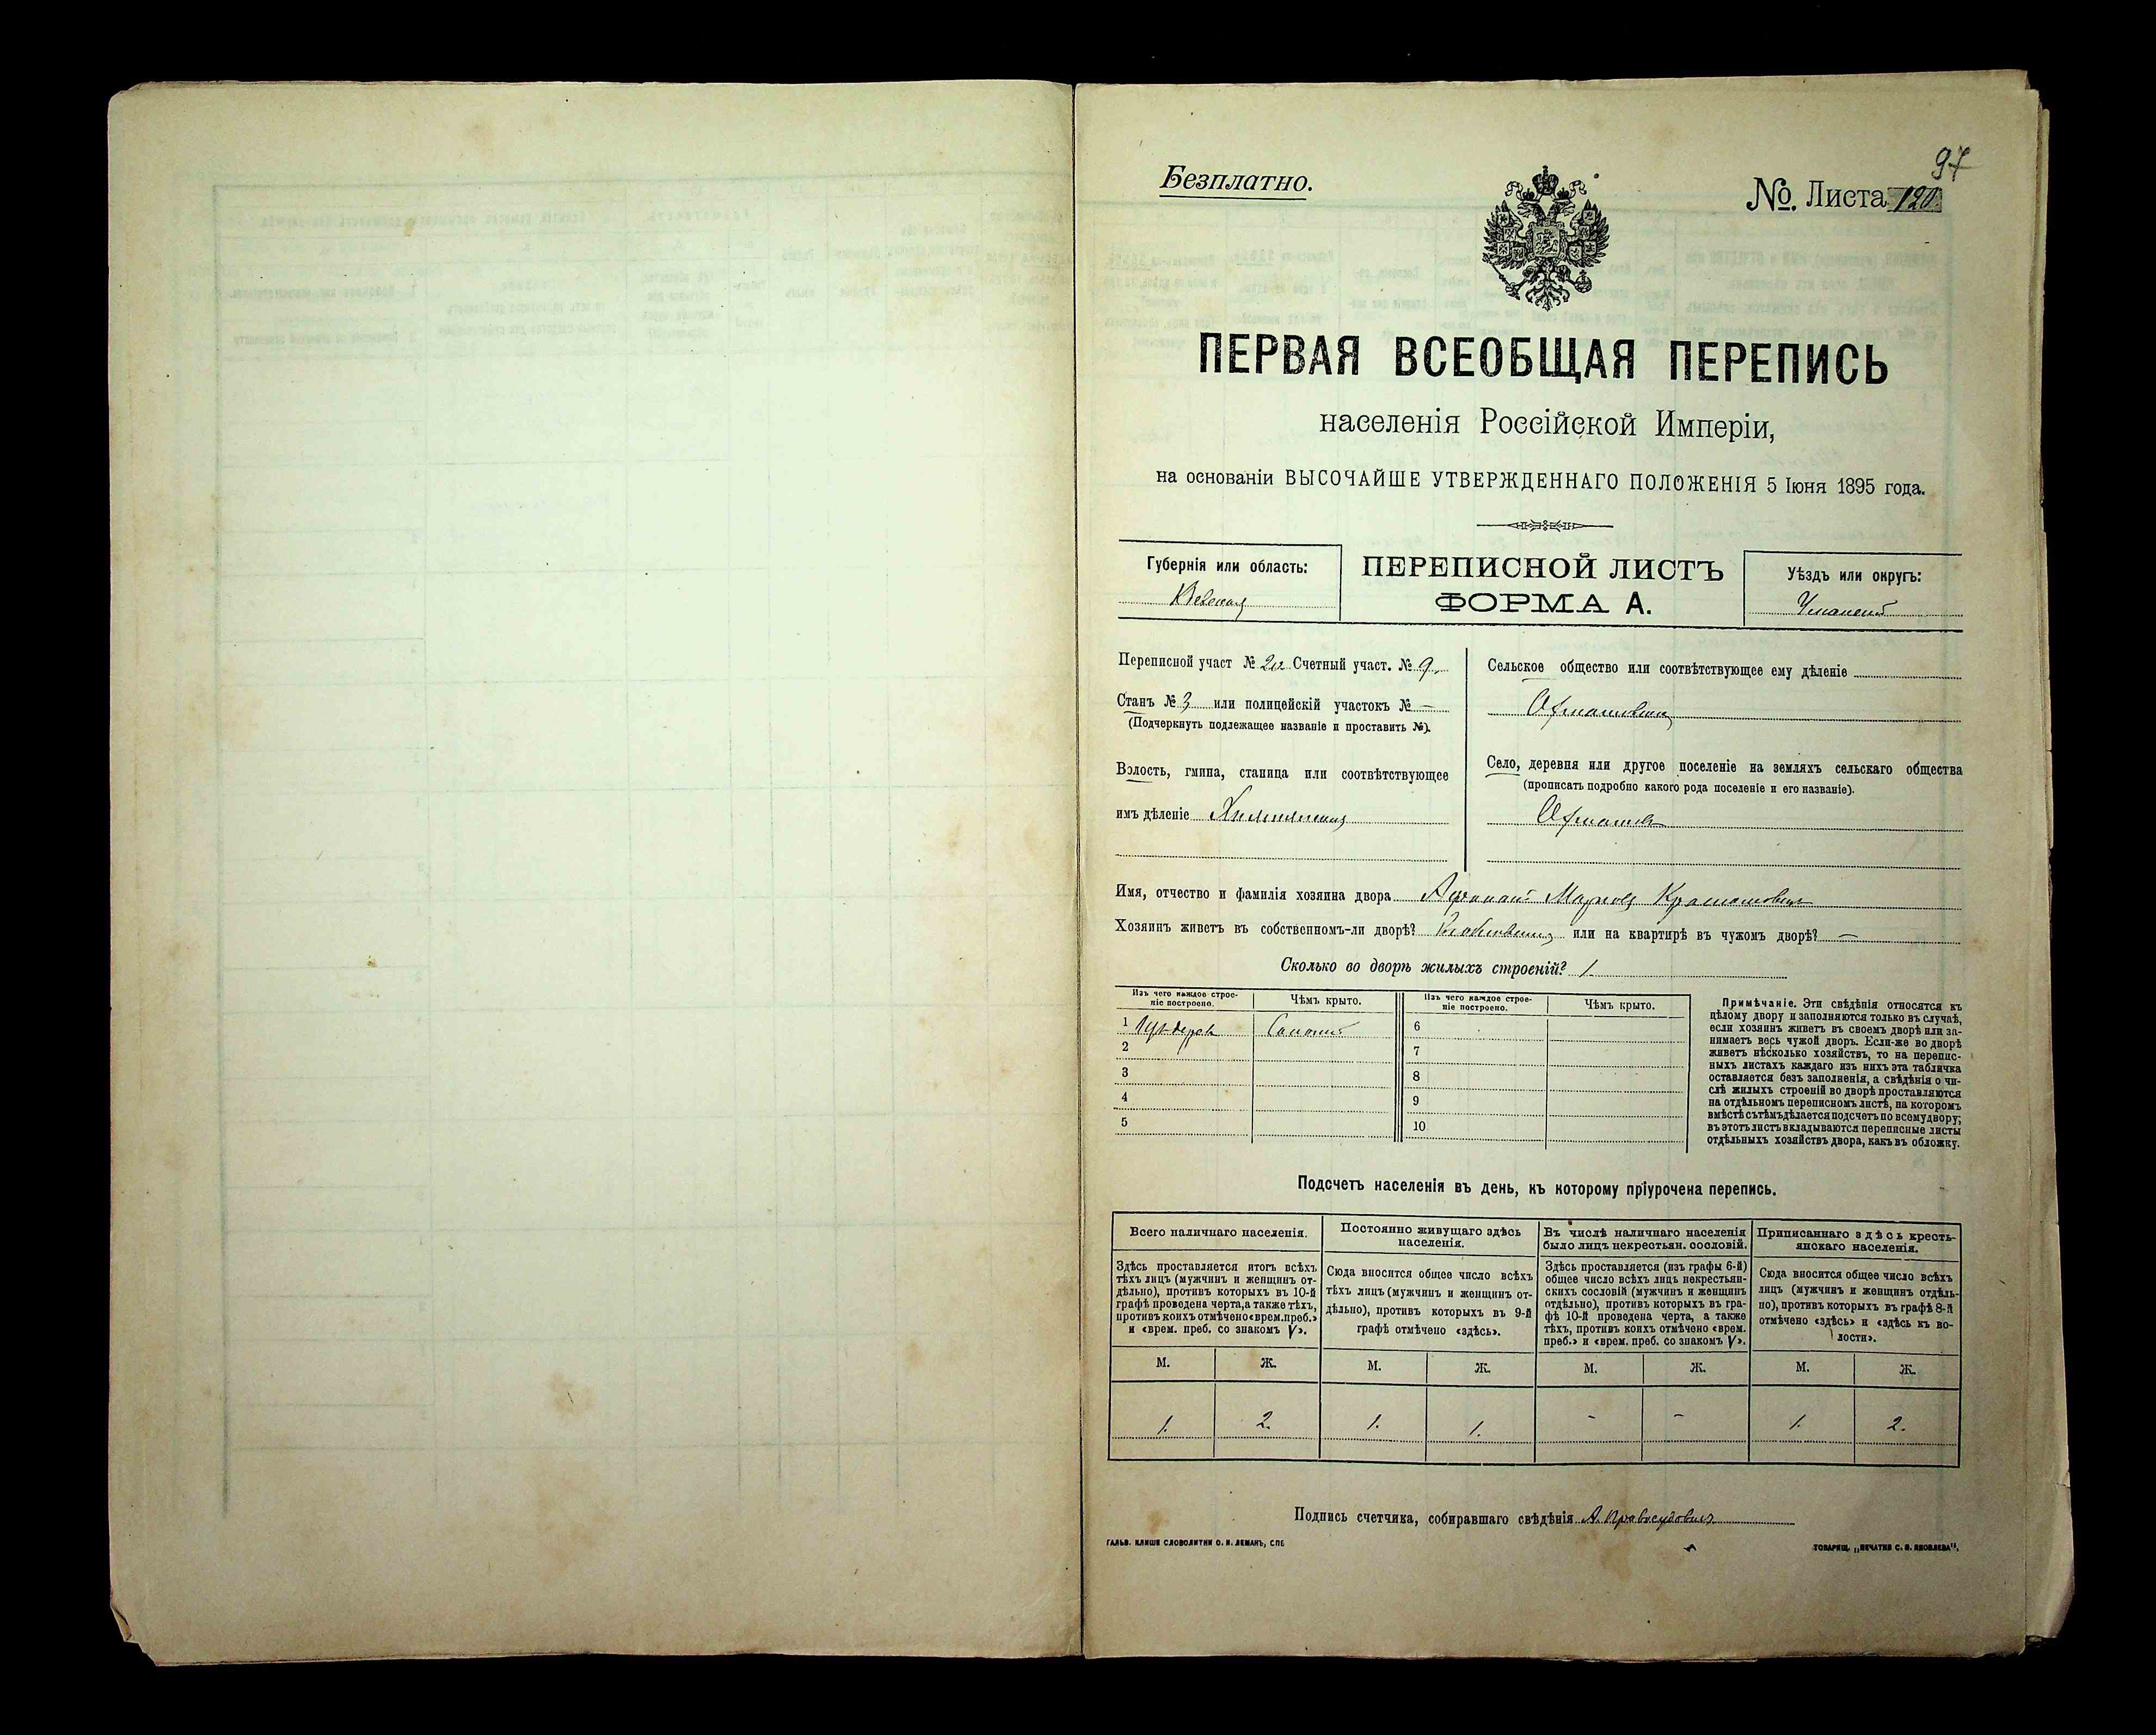 97
Безплатно.
№. Листа 120.
ПЕРВАЯ ВСЕОБЩАЯ ПЕРЕПИСЬ
населенія Россійской Имперіи,
на основаніи ВЫСОЧАЙШЕ УТВЕРЖДЕННАГО ПОЛОЖЕНІЯ 5 Іюня 1895 года.
Губернія или область:
Кіевская
ПЕРЕПИСНОЙ ЛИСТЪ
ФОРМА А.
Уѣздъ или округъ:
Уманскій
Переписной участ № 20 Счетный участ. № 9.
Станъ № 3 или полицейскій участокъ № —
(Подчеркнуть подлежащее названіе и проставить №).
Волость, гмина, станица или соотвѣтствующее
имъ дѣленіе
Сельское общество или соотвѣтствующее ему дѣленіе
Село, деревня или другое поселеніе на земляхъ сельскаго общества
(прописать подробно какого рода поселеніе и его названіе).
Имя, отчество и фамилія хозяина двора
Хозяинъ живетъ въ собственномъ-ли дворѣ? или на квартирѣ въ чужомъ дворѣ? —
Сколько во дворѣ жилыхъ строеній? 1
Изъ чего каждое строе-
ніе построено.
Чѣмъ крыто.
Изъ чего каждое строе-
ніе построено.
Чѣмъ крыто.
1
6
2
7
3
8
4
9
5
10
Примѣчаніе. Эти свѣдѣнія относятся къ
цѣлому двору и заполняются только въ случаѣ,
если хозяинъ живетъ въ своемъ дворѣ или за-
нимаетъ весь чужой дворъ. Если-же во дворѣ
живетъ нѣсколько хозяйствъ, то на перепис-
ныхъ листахъ каждаго изъ нихъ эта табличка
оставляется безъ заполненія, а свѣдѣнія о чи-
слѣ жилыхъ строеній во дворѣ проставляются
на отдѣльномъ переписномъ листѣ, на которомъ
вмѣстѣ съ тѣмъ дѣлается подсчетъ по всему двору;
въ этотъ листъ вкладываются переписные листы
отдѣльныхъ хозяйствъ двора, какъ въ обложку.
Подсчетъ населенія въ день, къ которому пріурочена перепись.
Всего наличнаго населенія.
Постоянно живущаго здѣсь
населенія.
Въ числѣ наличнаго населенія
было лицъ некрестьян. сословій.
Приписаннаго здѣсь кресть-
янскаго населенія.
Здѣсь проставляется итогъ всѣхъ
тѣхъ лицъ (мужчинъ и женщинъ от-
дѣльно), противъ которыхъ въ 10-й
графѣ проведена черта, а также тѣхъ,
противъ коихъ отмѣчено «врем. преб.»
и «врем. преб. со знакомъ V».
Сюда вносится общее число всѣхъ
тѣхъ лицъ (мужчинъ и женщинъ от-
дѣльно), противъ которыхъ въ 9-й
графѣ отмѣчено «здѣсь».
Здѣсь проставляется (изъ графы 6-й)
общее число всѣхъ лицъ некрестьян-
скихъ сословій (мужчинъ и женщинъ
отдѣльно), противъ которыхъ въ гра-
фѣ 10-й проведена черта, а также
тѣхъ, противъ коихъ отмѣчено «врем.
преб.» и «врем. преб. со знакомъ V».
Сюда вносится общее число всѣхъ
лицъ (мужчинъ и женщинъ отдѣль-
но), противъ которыхъ въ графѣ 8-й
отмѣчено «здѣсь» и «здѣсь къ во-
лости».
М. Ж. М. Ж. М. Ж. М. Ж.
1. 2. 1. 1. - - 1. 2.
Подпись счетчика, собиравшаго свѣдѣнія
ГАЛЬВ. КЛИШЕ СЛОВОЛИТНИ О. И. ЛЕМАНЪ, СПБ
ТОВАРИЩ. „ПЕЧАТНЯ С. П. ЯКОВЛЕВА".